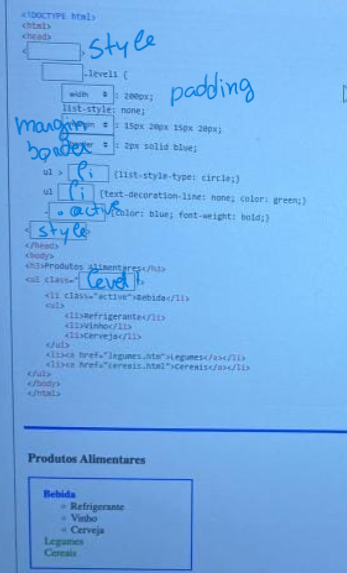 <!DOCTYPE html>
<html>
<head>
< > style
.level1 {
width : 200px; padding
list-style: none;
margin : 15px 20px 15px 20px;
border : 2px solid blue;
ul > li {list-style-type: circle;}
ul li {text-decoration-line: none; color: green;}
.active {color: blue; font-weight: bold;}
< style >
</head>
<body>
<h3>Produtos Alimentares</h3>
<ul class=" level1
<li class="active">Bebida</li>
<ul>
<li>Refrigerante</li>
<li>Vinho</li>
<li>Cerveja</li>
</ul>
<li><a href="legumes.htm">Legumes</a></li>
<li><a href="cereais.html">Cereais</a></li>
</ul>
</body>
</html>
Produtos Alimentares
Bebida
Refrigerante
Vinho
Cerveja
Legumes
Cereais